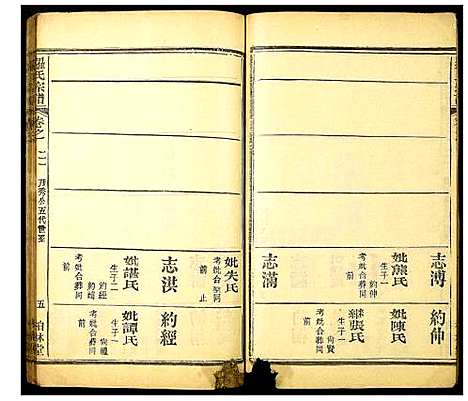 志溥
妣熊氏
生子一
約仲
考妣合葬同
前
志滿
約仲
妣陳氏
繼張氏
生子一
尚賢
考妣合葬同
前
妣失氏
考妣合葬同
前
止
志淇
妣諶氏
生子二
約經
約緒
考妣合葬同
前
約經
妣譚氏
生子一
尚禮
考妣合葬同
前
氏宗譜
卷之一二
五代世系
五
柏林堂